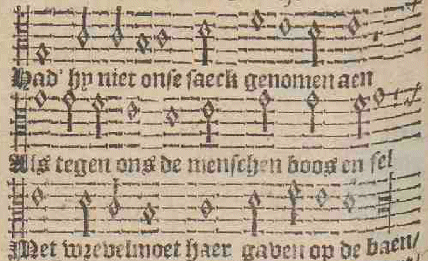 Had' hy niet onse saeck genomen aen
Als tegen ons de menschen boos en fel
Met wrevelmoet haer gaven op de baen/